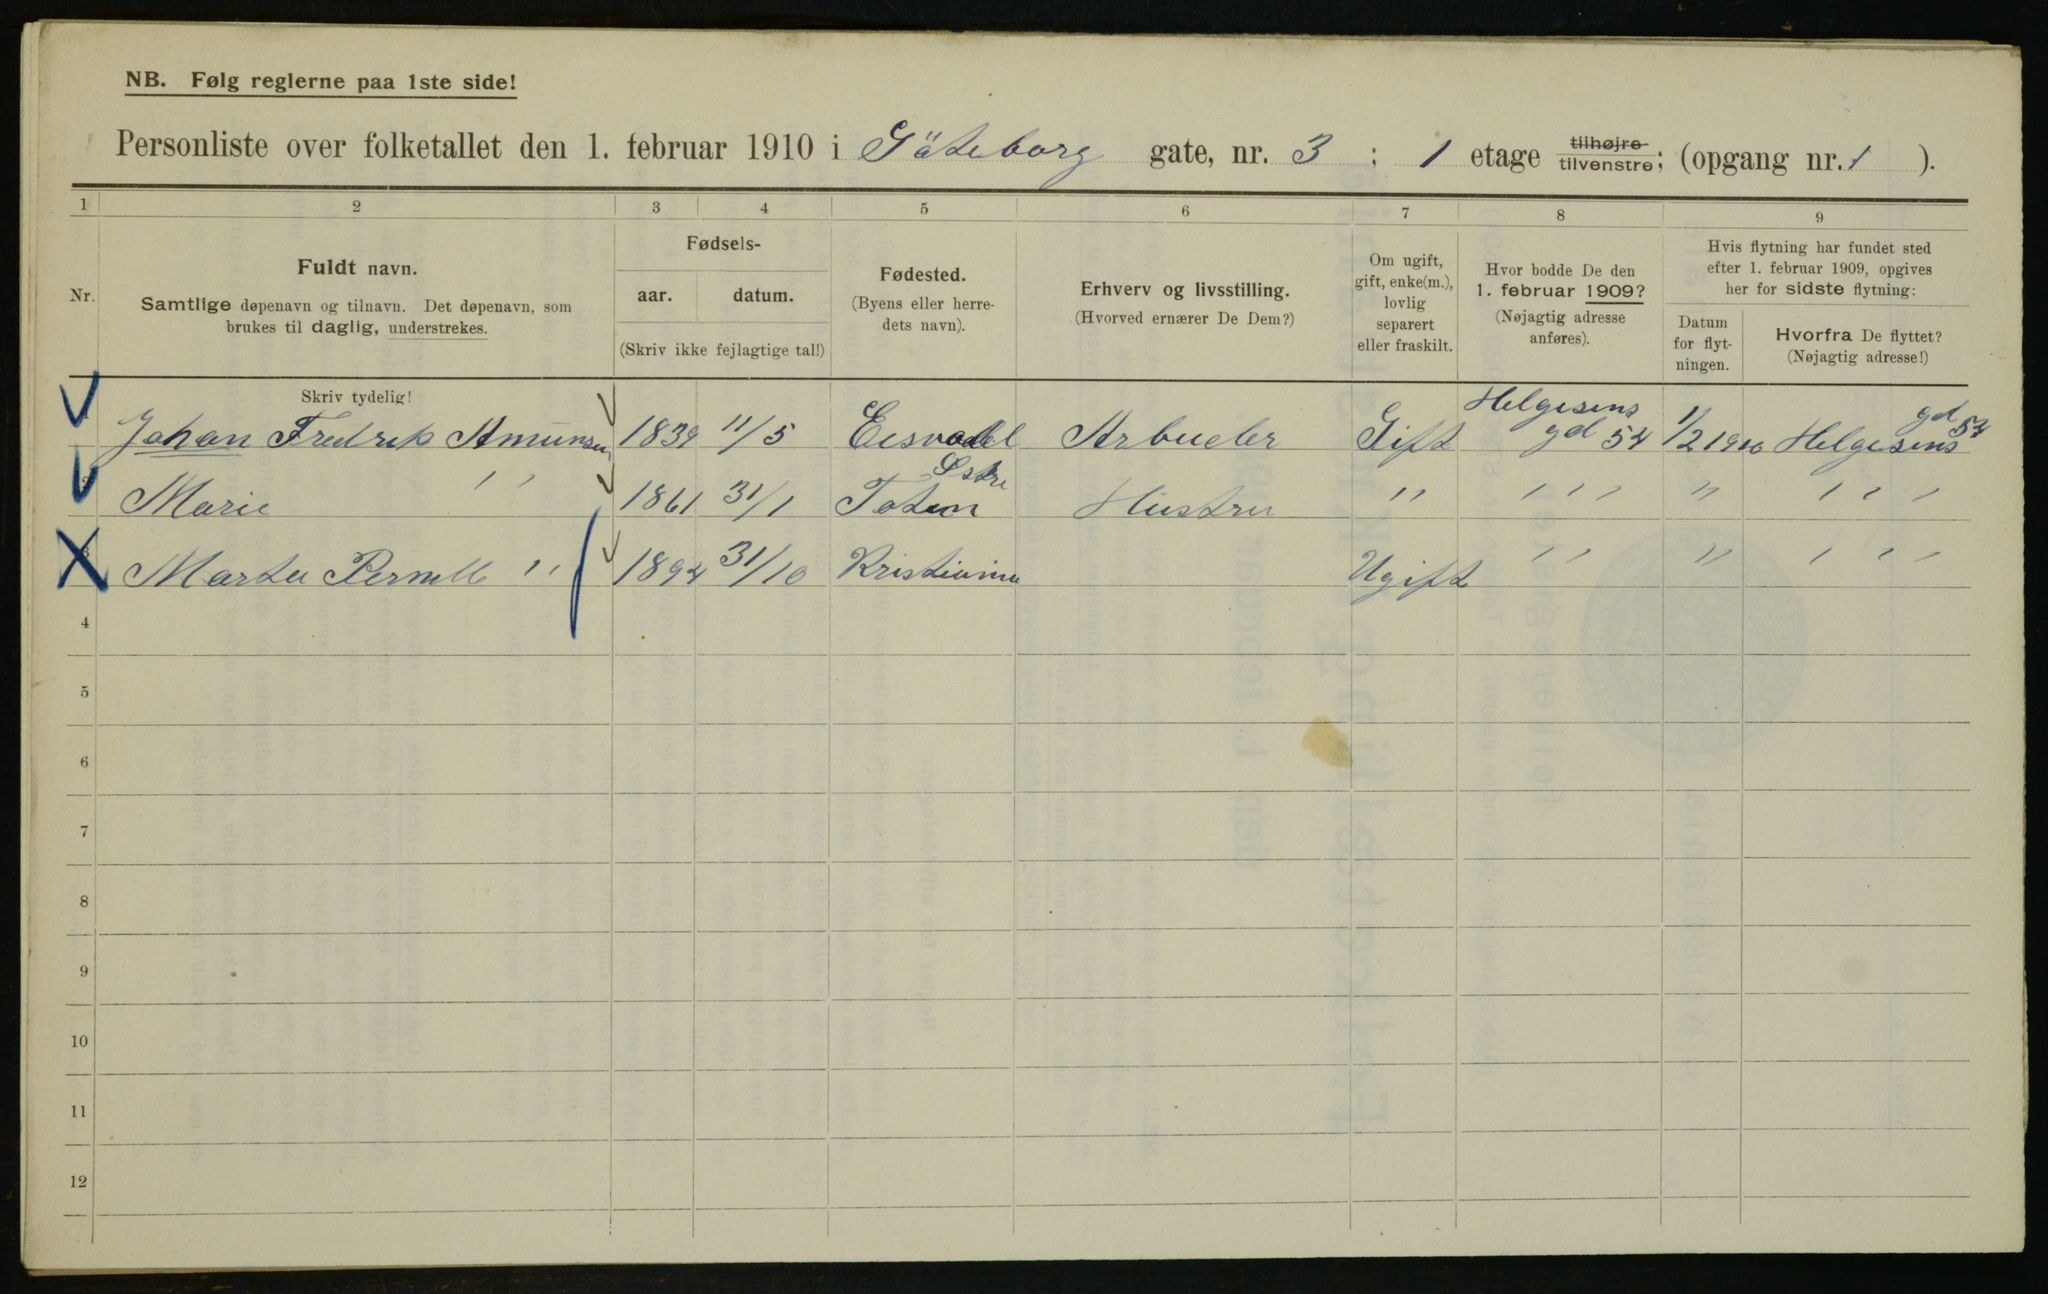 NB. Følg reglerne paa 1ste side!
Personliste over folketallet den 1. februar 1910 i Göteborg gate, nr. 3 ; 1 etage tilhøjre tilvenstre; (opgang nr. 1 ).
1 2 3 4 5 6 7 8 9
Nr.
Fuldt navn.
Samtlige døpenavn og tilnavn. Det døpenavn, som
brukes til daglig, understrekes.
Fødsels-
aar. datum.
(Skriv ikke fejlagtige tal!)
Fødested.
(Byens eller herre-
dets navn).
Erhverv og livsstilling.
(Hvorved ernærer De Dem?)
Om ugift,
gift, enke(m.),
lovlig
separert
eller fraskilt.
Hvor bodde De den
1. februar 1909?
(Nøjagtig adresse
anføres).
Hvis flytning har fundet sted
efter 1. februar 1909, opgives
her for sidste flytning:
Datum
for flyt-
ningen.
Hvorfra De flyttet?
(Nøjagtig adresse!)
Skriv tydelig!
1 Johan Fredrik Amunsen 1839 11/5 Eisvodel Arbueder Gift Helgesens gd 54 1/2 1910 Helgesens gd 54
2 Marie " 1861 31/1 Östre Toten Hustru " " " " " " "
3 Marta Pernell " 1894 31/10 Kristiania Ugift " " " " " "
4
5
6
7
8
9
10
11
12